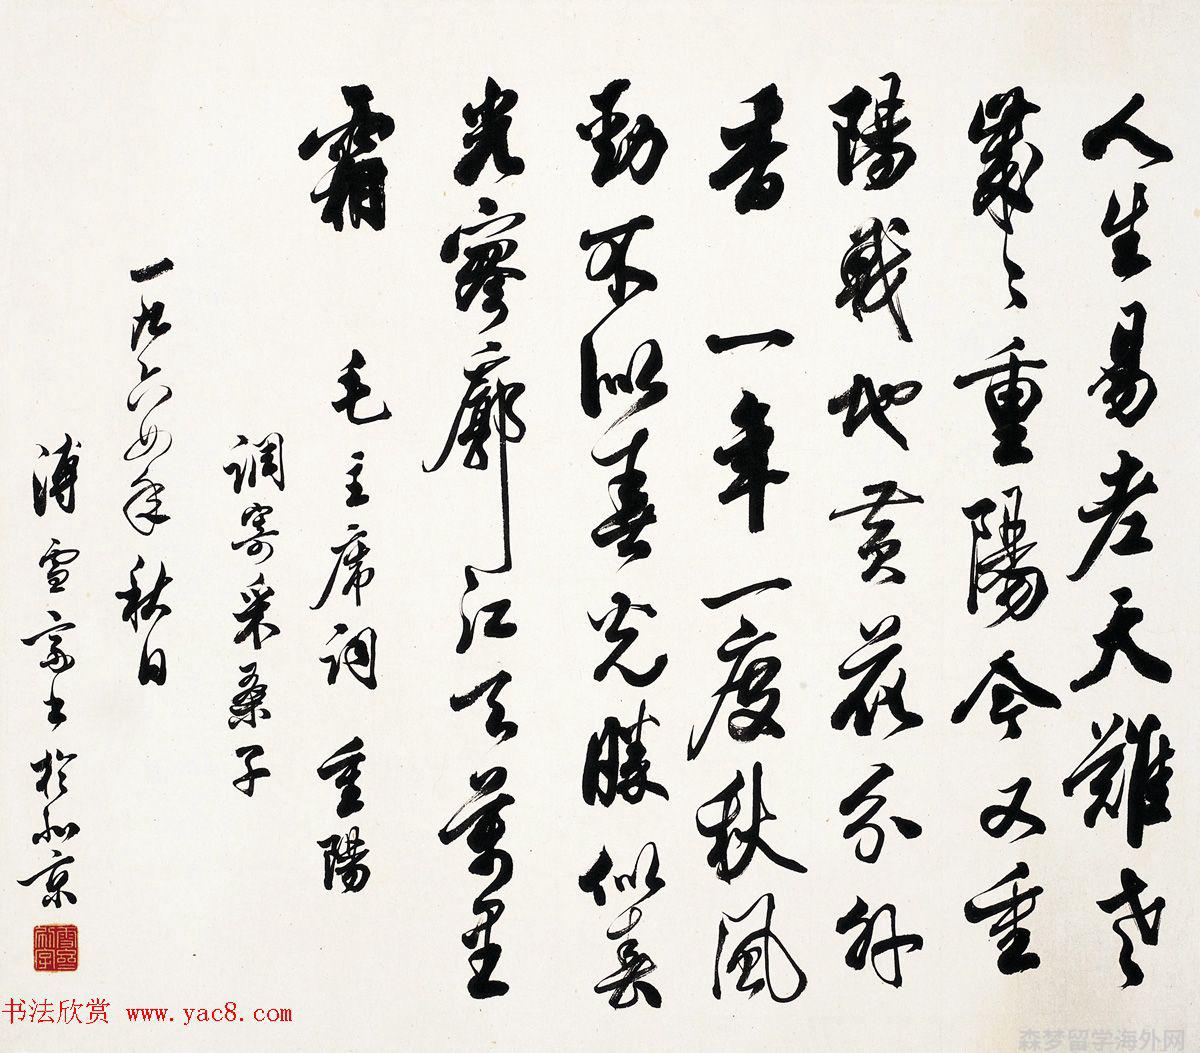 人生易老天難老
歲〻重陽今又重
陽戰地黄花分外
香 一年一度秋風
勁不似春光勝似春
光寥廓江天萬里
霜 毛主席詞 重陽
調寄采桑子
一九六四年秋日
溥雪齋書於北京
书法欣赏 www.yac8.com
森梦留学海外网